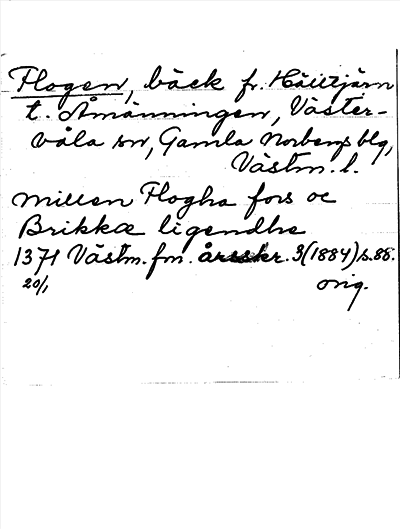 Flogen, bäck fr. Hälltjärn
t. Åmänningen, Väster-
våla sn, Gamla Norbergs blg,
Västm. l.
millen Flogha fors oc
Brikkæ ligendhe
1371 Västm. fm. årsskr. 3 (1884) s. 88.
20/1 orig.